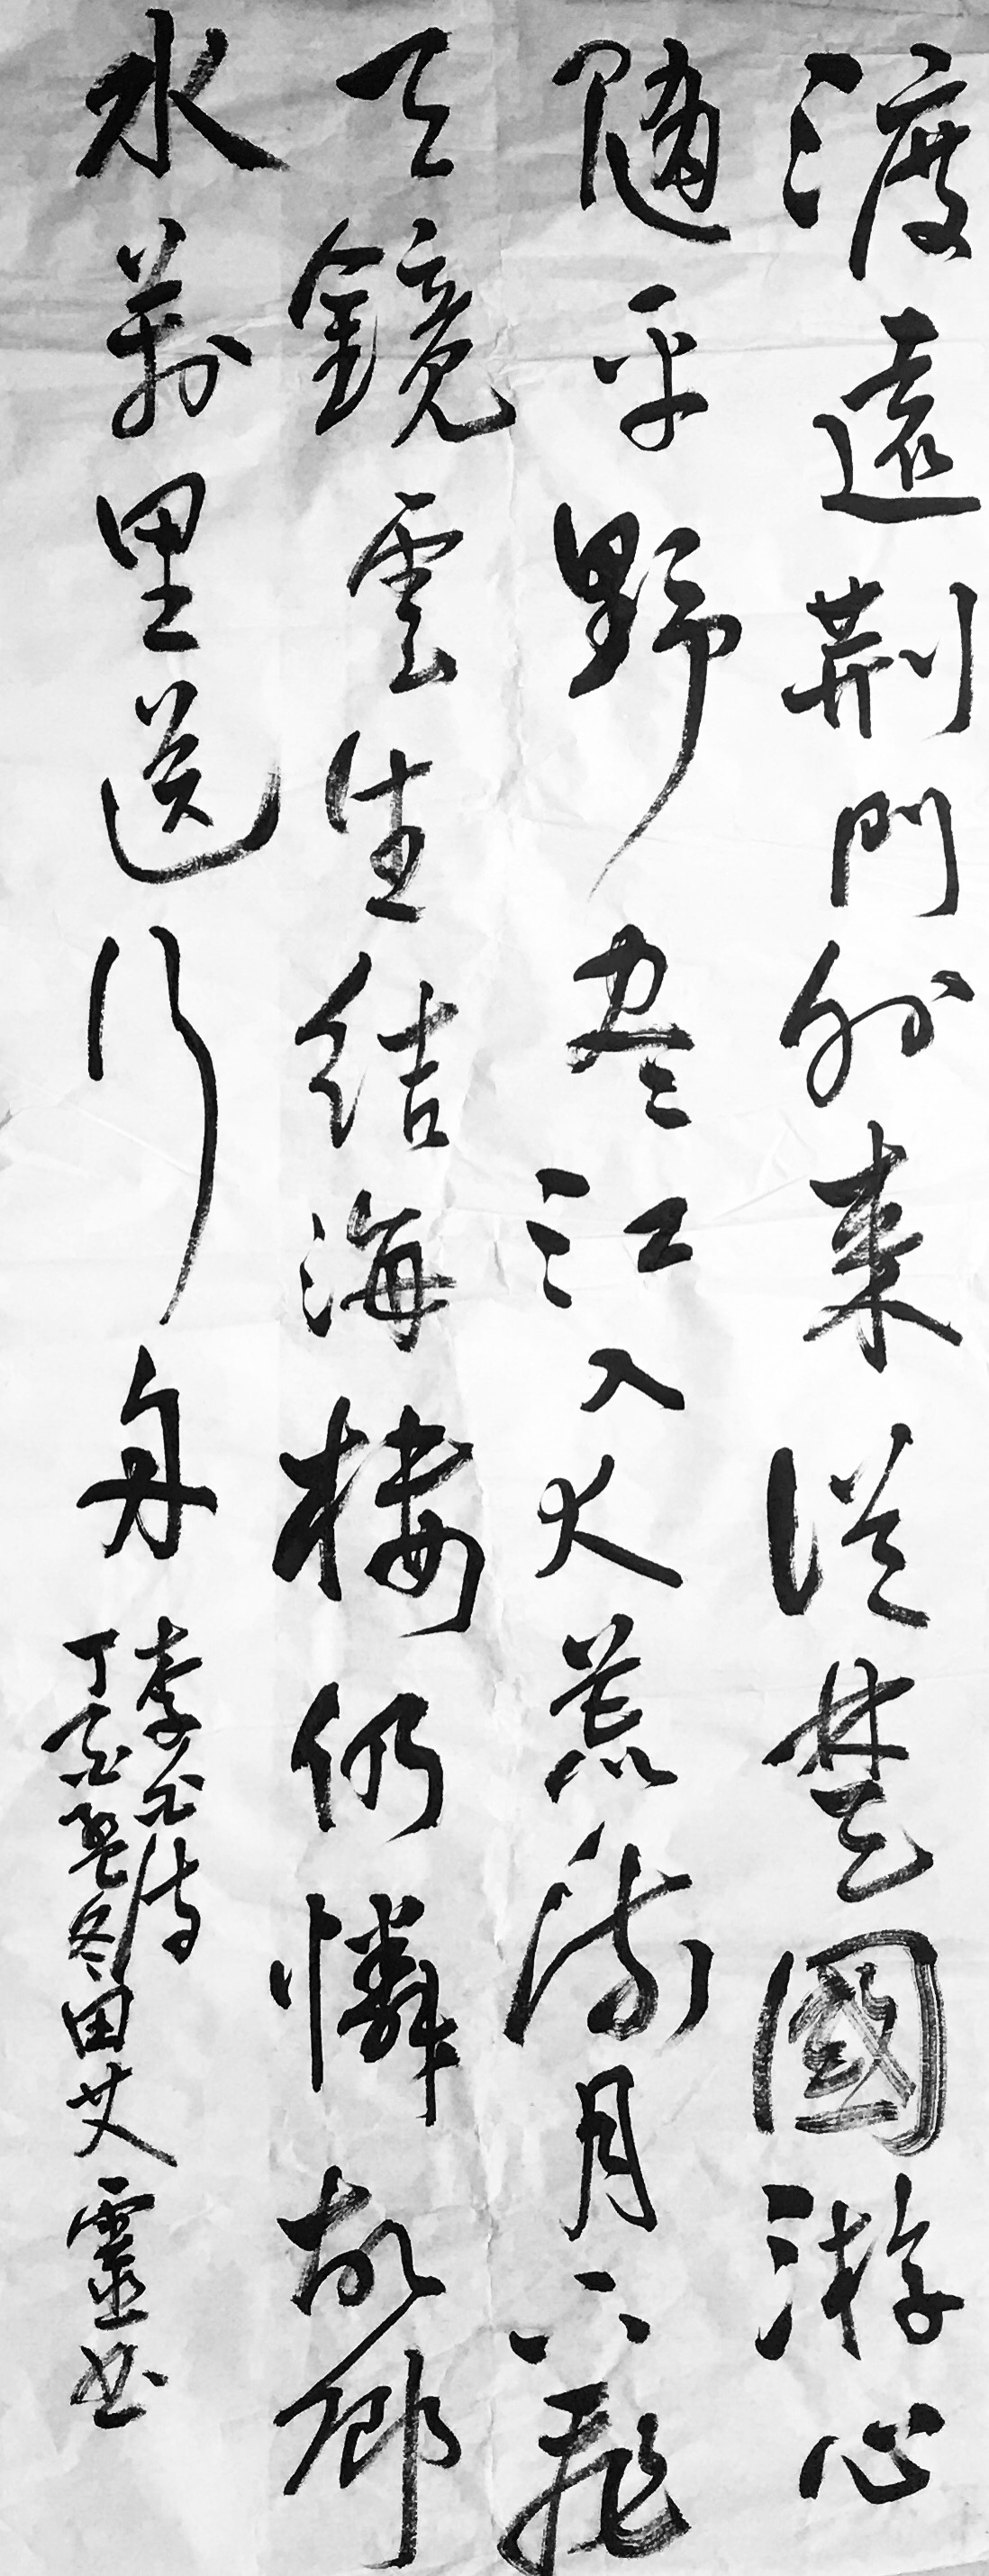 渡遠荆門外来從楚國游山
隨平野尽江入大荒流月下飛
天鏡雲生結海樓仍憐故鄉
水萬里送行舟
李白詩
丁酉孟冬田艾靈书